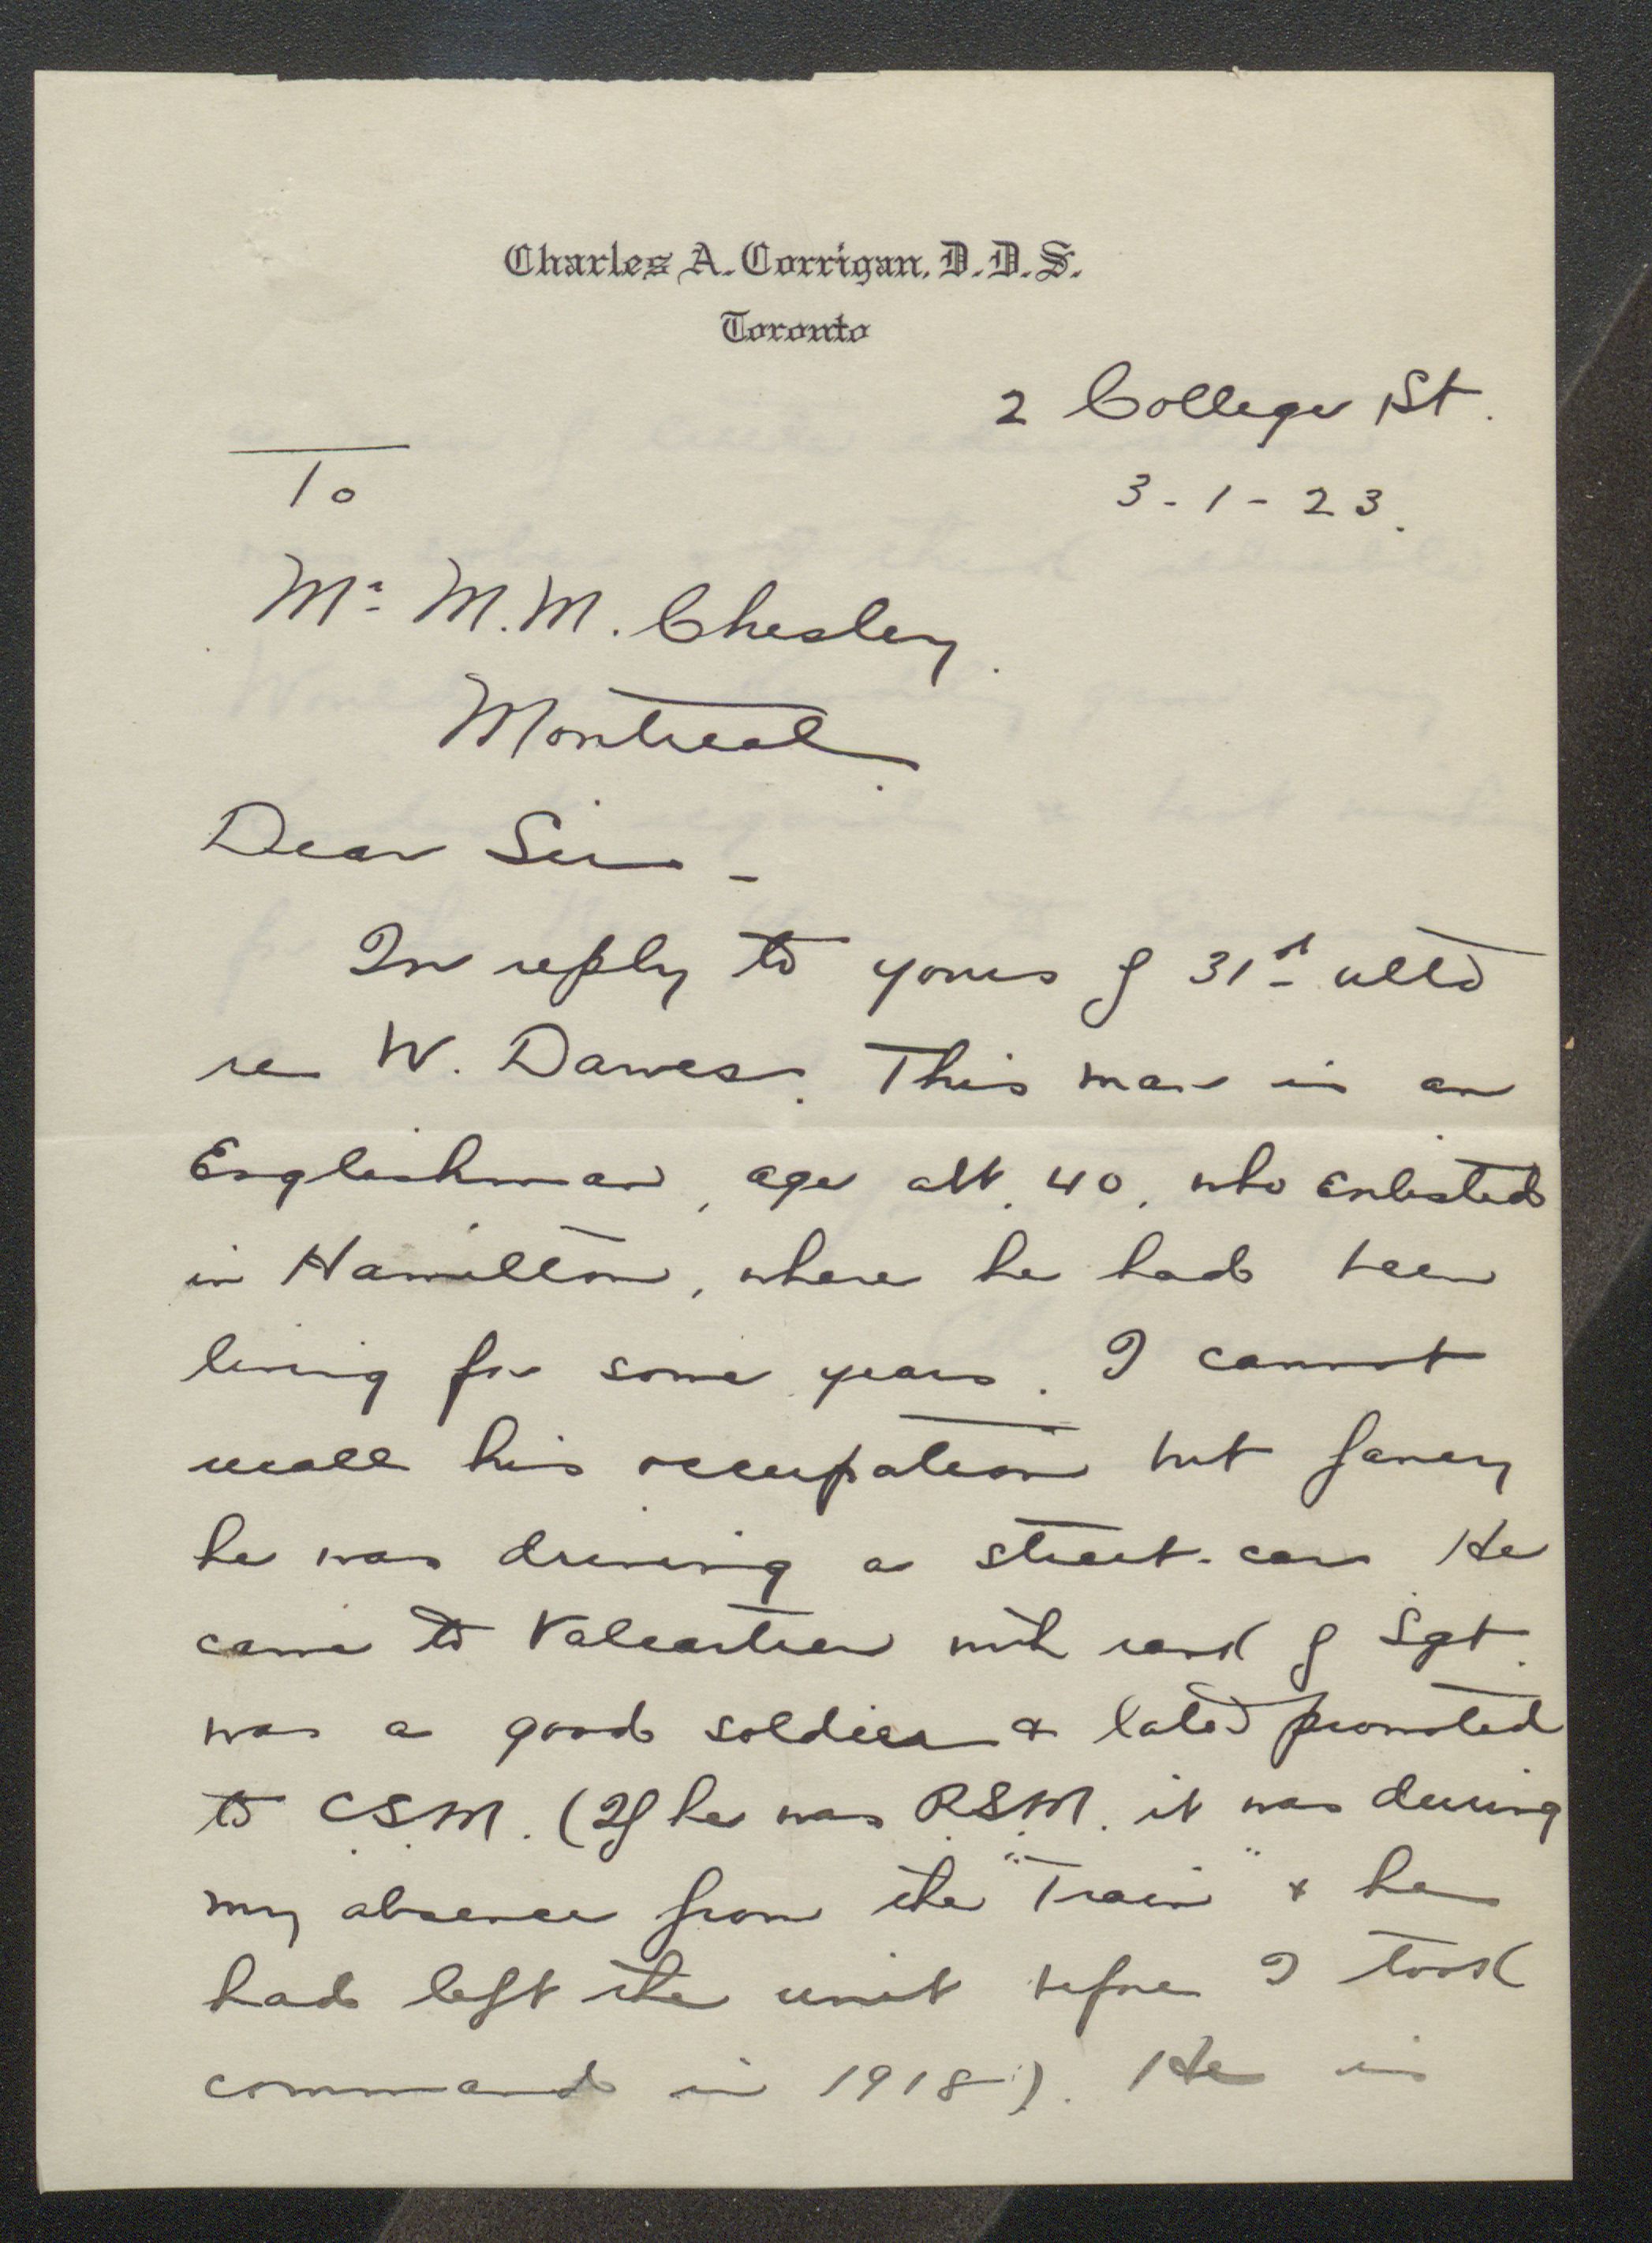 Charles A. Corrigan, D.D.S.
Toronto
2 College St.
To
3-1-23.
Mr. M.M. Chesley.
Montreal.
Dear Sir -
In reply to yours of 31st ulto
re W. Dawes. This man is an
Englishman, age abt. 40, who enlisted
in Hamilton, where he had been
living for some years. I cannot
recall his occupation but fancy
he was driving a street-car He
came to Valcartier with rank of Sgt.
was a good soldier & later promoted
to C.S.M. (If he was R.S.M. it was during
my absence from the "Train" & he
had left the unit before I took
command in 1918). He is